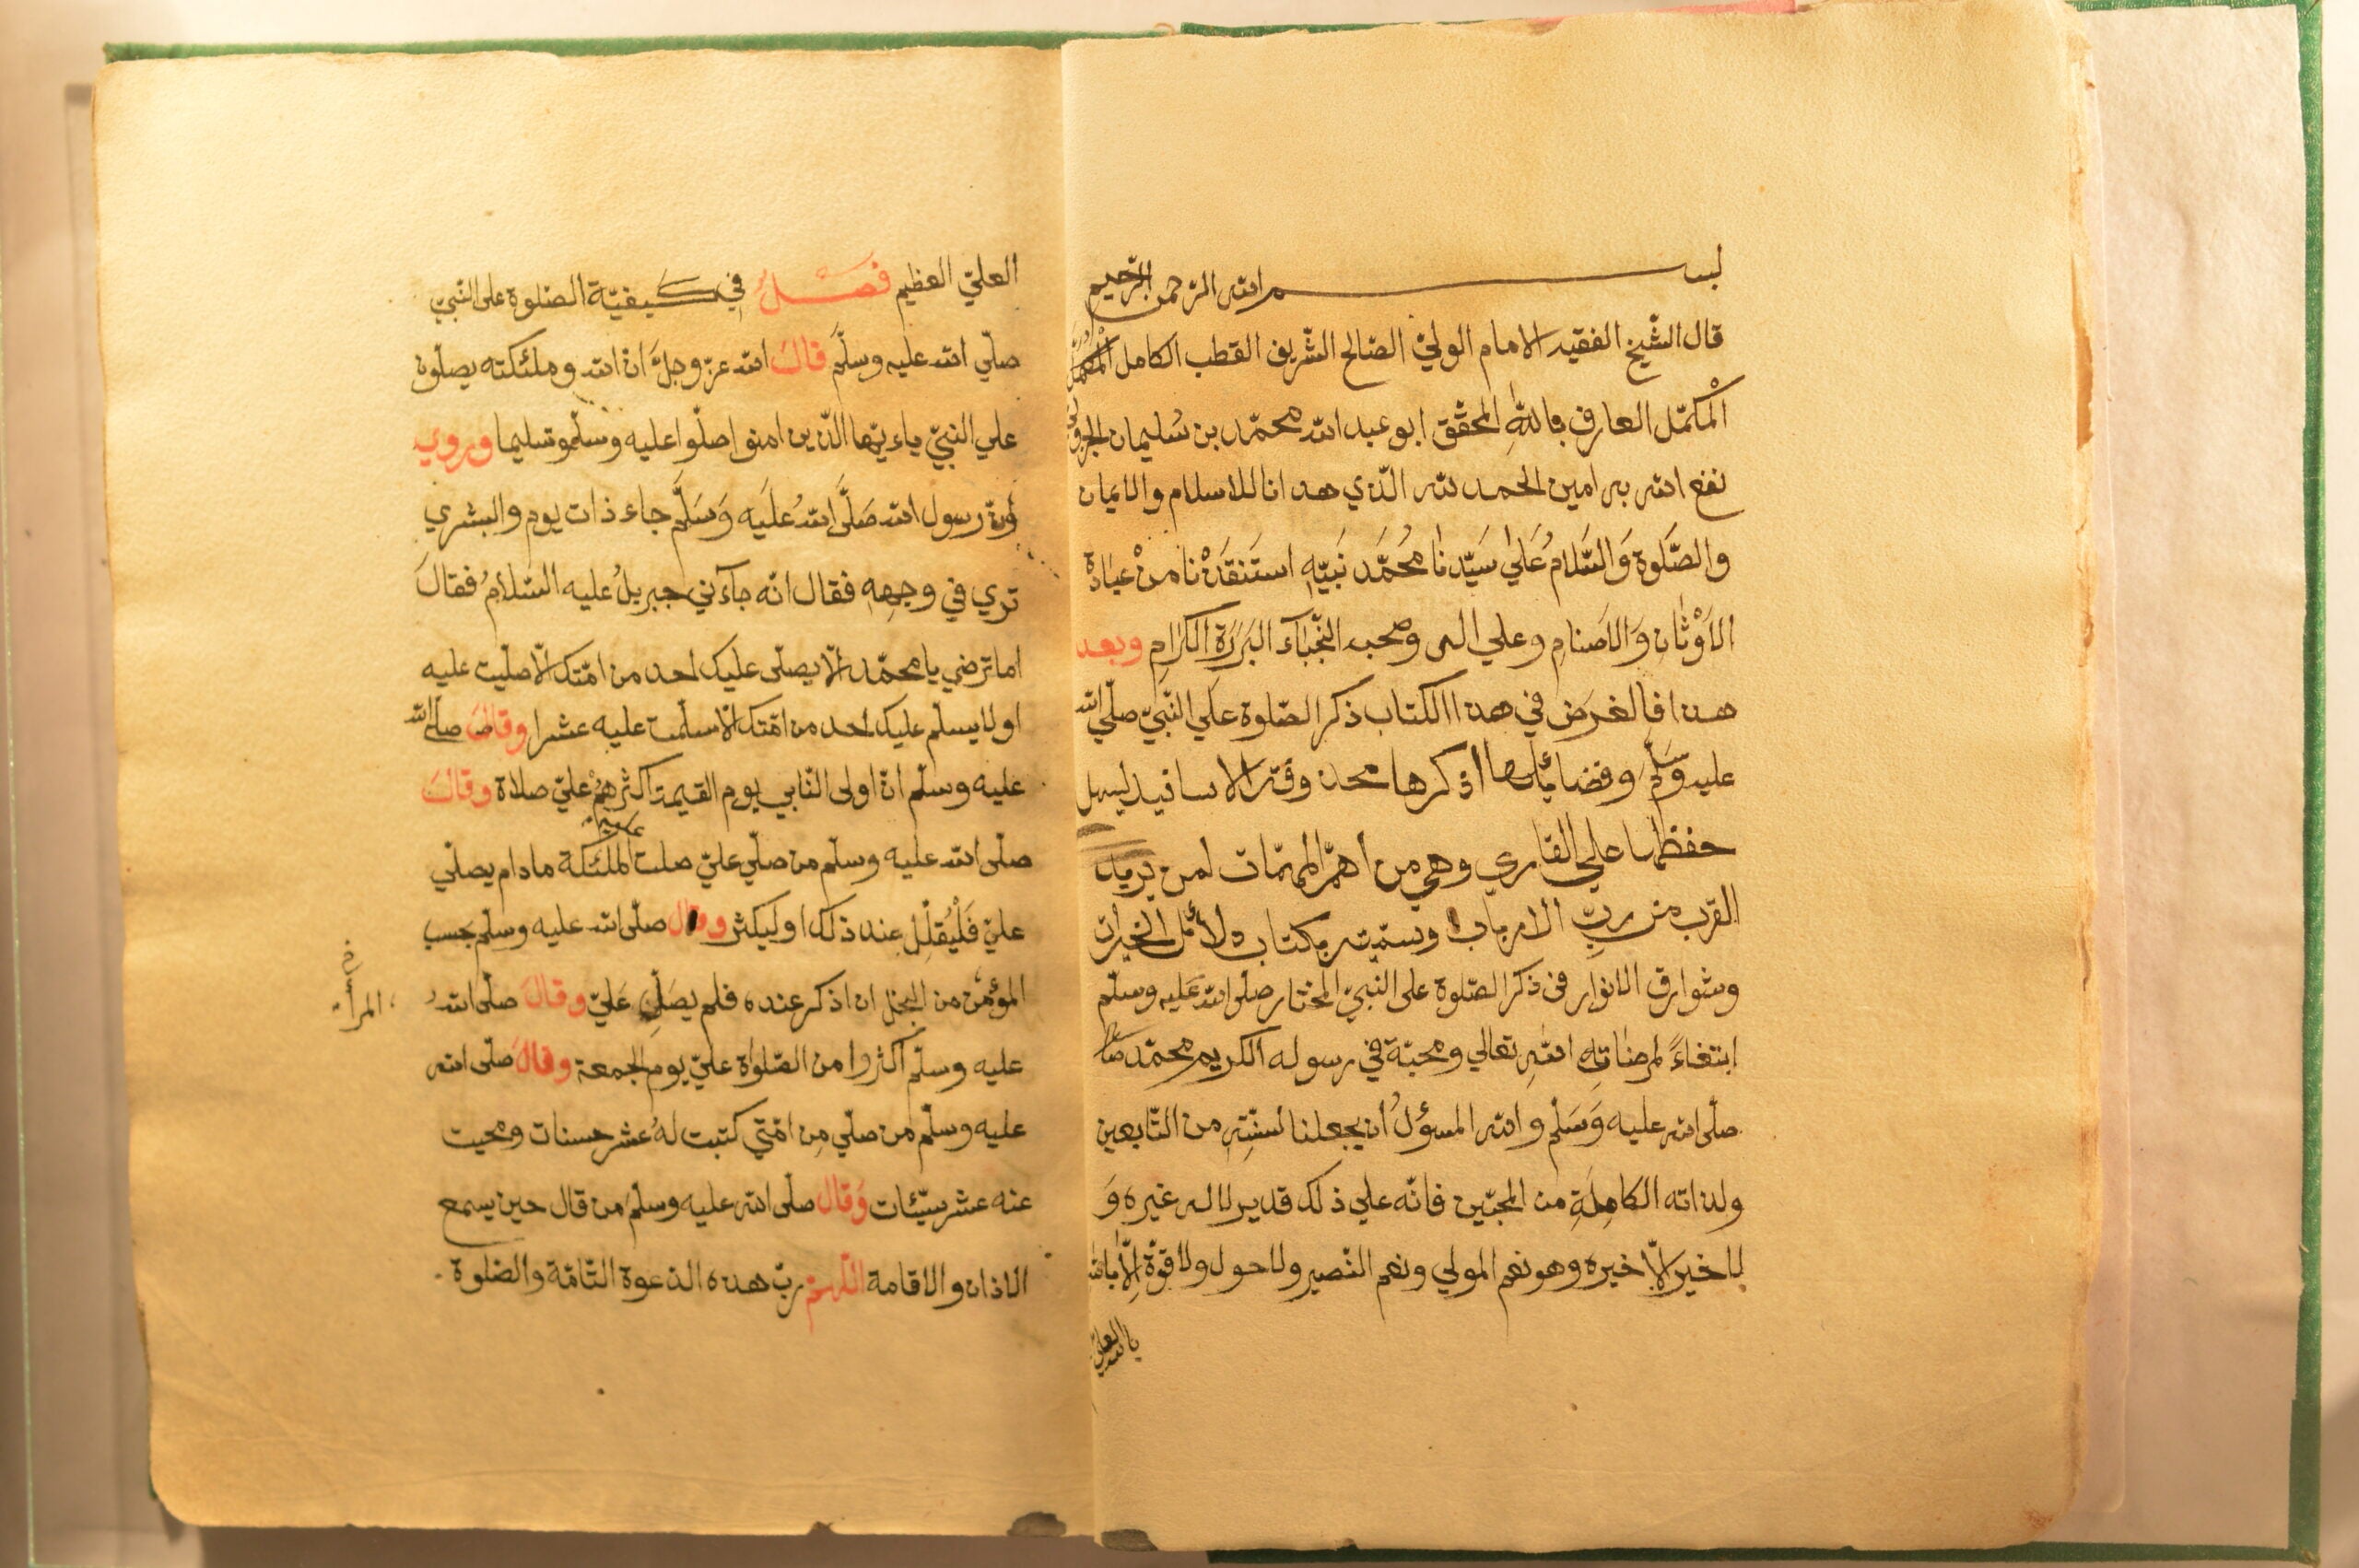 بسم الله الرحمن الرحيم
قال الشّيخ الفقيه الامام الوليّ الصّالح الشّريف القطب الكامل
الْمكمّل العارف باللهِ المحقّق ابو عبد الله محمّد بن سُليمان الجزولي
نفع الله به امين الحمد لله الّذي هدانا للاسلام والايمان
والصَّلوة وَالسَّلامُ عَلىٰ سَيّدنَا مُحَمَّد نَبيّهِ استَنقَذْنا منْ عبَادَة
الاَوْثَانِ وَالاَصنامِ وعلي اله وصحبه النّجَبَآء البَرَرَةِ الكرَامِ وبعد
هذا فالغَرَض في هذا الكتاب ذكر الصّلوة عَلي النّبيّ صلّي الله
عليه وَسَلّم وفضائلها اذكرها محذوفة الاسانيد ليسهل
حفظها علي القاري وهي من اهمّ المهمّات لمن يريد
القرب من ربّ الارباب وسمّيته بكتاب دلائل الخيرات
وشوارق الانوار فى ذكر الصّلوة على النّبيّ المختار صلّى الله عَليه وسلّم
ابتغاءً لمرضاتِهِ اللهِ تعالي ومحبّة في رسوله الكريم محمّد
صلّى الله عليه وَسَلّم والله المسؤلُ ان يجعلنا لسنّتِهِ من التّابعين
ولذاته الكامِلَةِ من المحبّين فانّه علي ذلك قدير لا اله غيره وَ
لا خير الّا خيره وهو نعم المولي ونعم النّصير ولا حول ولا قوّة اِلّا بالله
العليّ العظيم فَصْلٌ فِي كيفيّة الصّلوة على النّبيّ
صلّي الله عليه وسلَّم قالَ الله عزّ وجلَّ ان الله وملئكته يصلّون
علي النّبيّ ياءيّها الّذين امنوا صلّوا عليه وسلّمو تسليما وروي
أنّ رسول الله صَلَّى اللهُ علَيه وَسَلَّم جاء ذات يوم والبشري
تري في وجهِهِ فقال انّه جآءَني جبريلُ عليه السّلامُ فقالَ
اما ترضي يا محمّد الّا يصلّى عليك احد من امّتك الّا صلّيت عليه
او لا يسلّم عليك احد من امّتك الّا سلّمت عليه عشرا وقالَ صلّى الله
عليه وسلّم انّ اولى النّاس بي يوم القيمة اكثرهمْ عليّ صلاة وقالَ
صلّى الله عليه وسلّم من صلّي عليّ صلت عليه الملئكة ما دام يصلّي
عليّ فَلْيُقلّل عند ذلك او ليكثر وقال صلّى الله عليه وسلّم بحسب
المؤمن من البخل ان اذكر عنده فلم يصَلِّ عَليّ وقالَ صلّى اللهُ
المرأ
عليه وسلّم اكثروا من الصّلواة عليّ يوم الجمعة وقالَ صلّى الله
عليه وسلّم من صلّي مِن امّتي كتبت لهُ عشر حسنات ومحيت
عنه عشر سيّئات وَقال صلّى الله عليه وسلّم من قال حين يسمع
الاذان والاقامة اللّهمّ ربّ هذه الدّعوة التّامّة والصّلوة